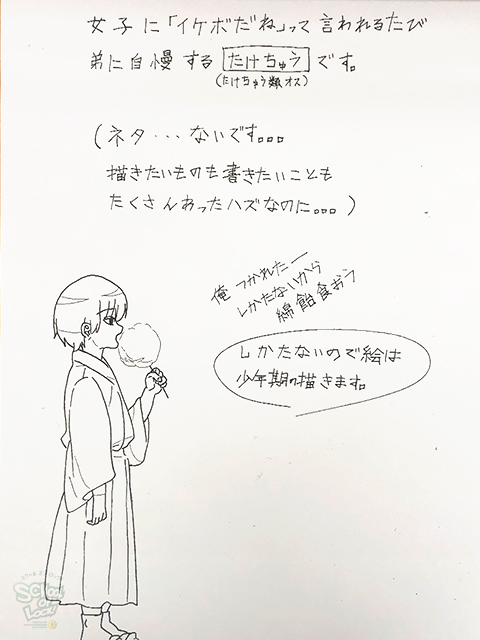 女子に「イケボだね」って言われるたび
弟に自慢する たけちゅう です。
(たけちゅう類オス)
(ネタ・・・ないです。。。
描きたいものも書きたいことも
たくさんあったハズなのに。。。)
俺 つかれたー
しかたないから
綿飴食おう
しかたないので絵は
少年期の描きます。
SCHOOL OF LOCK!